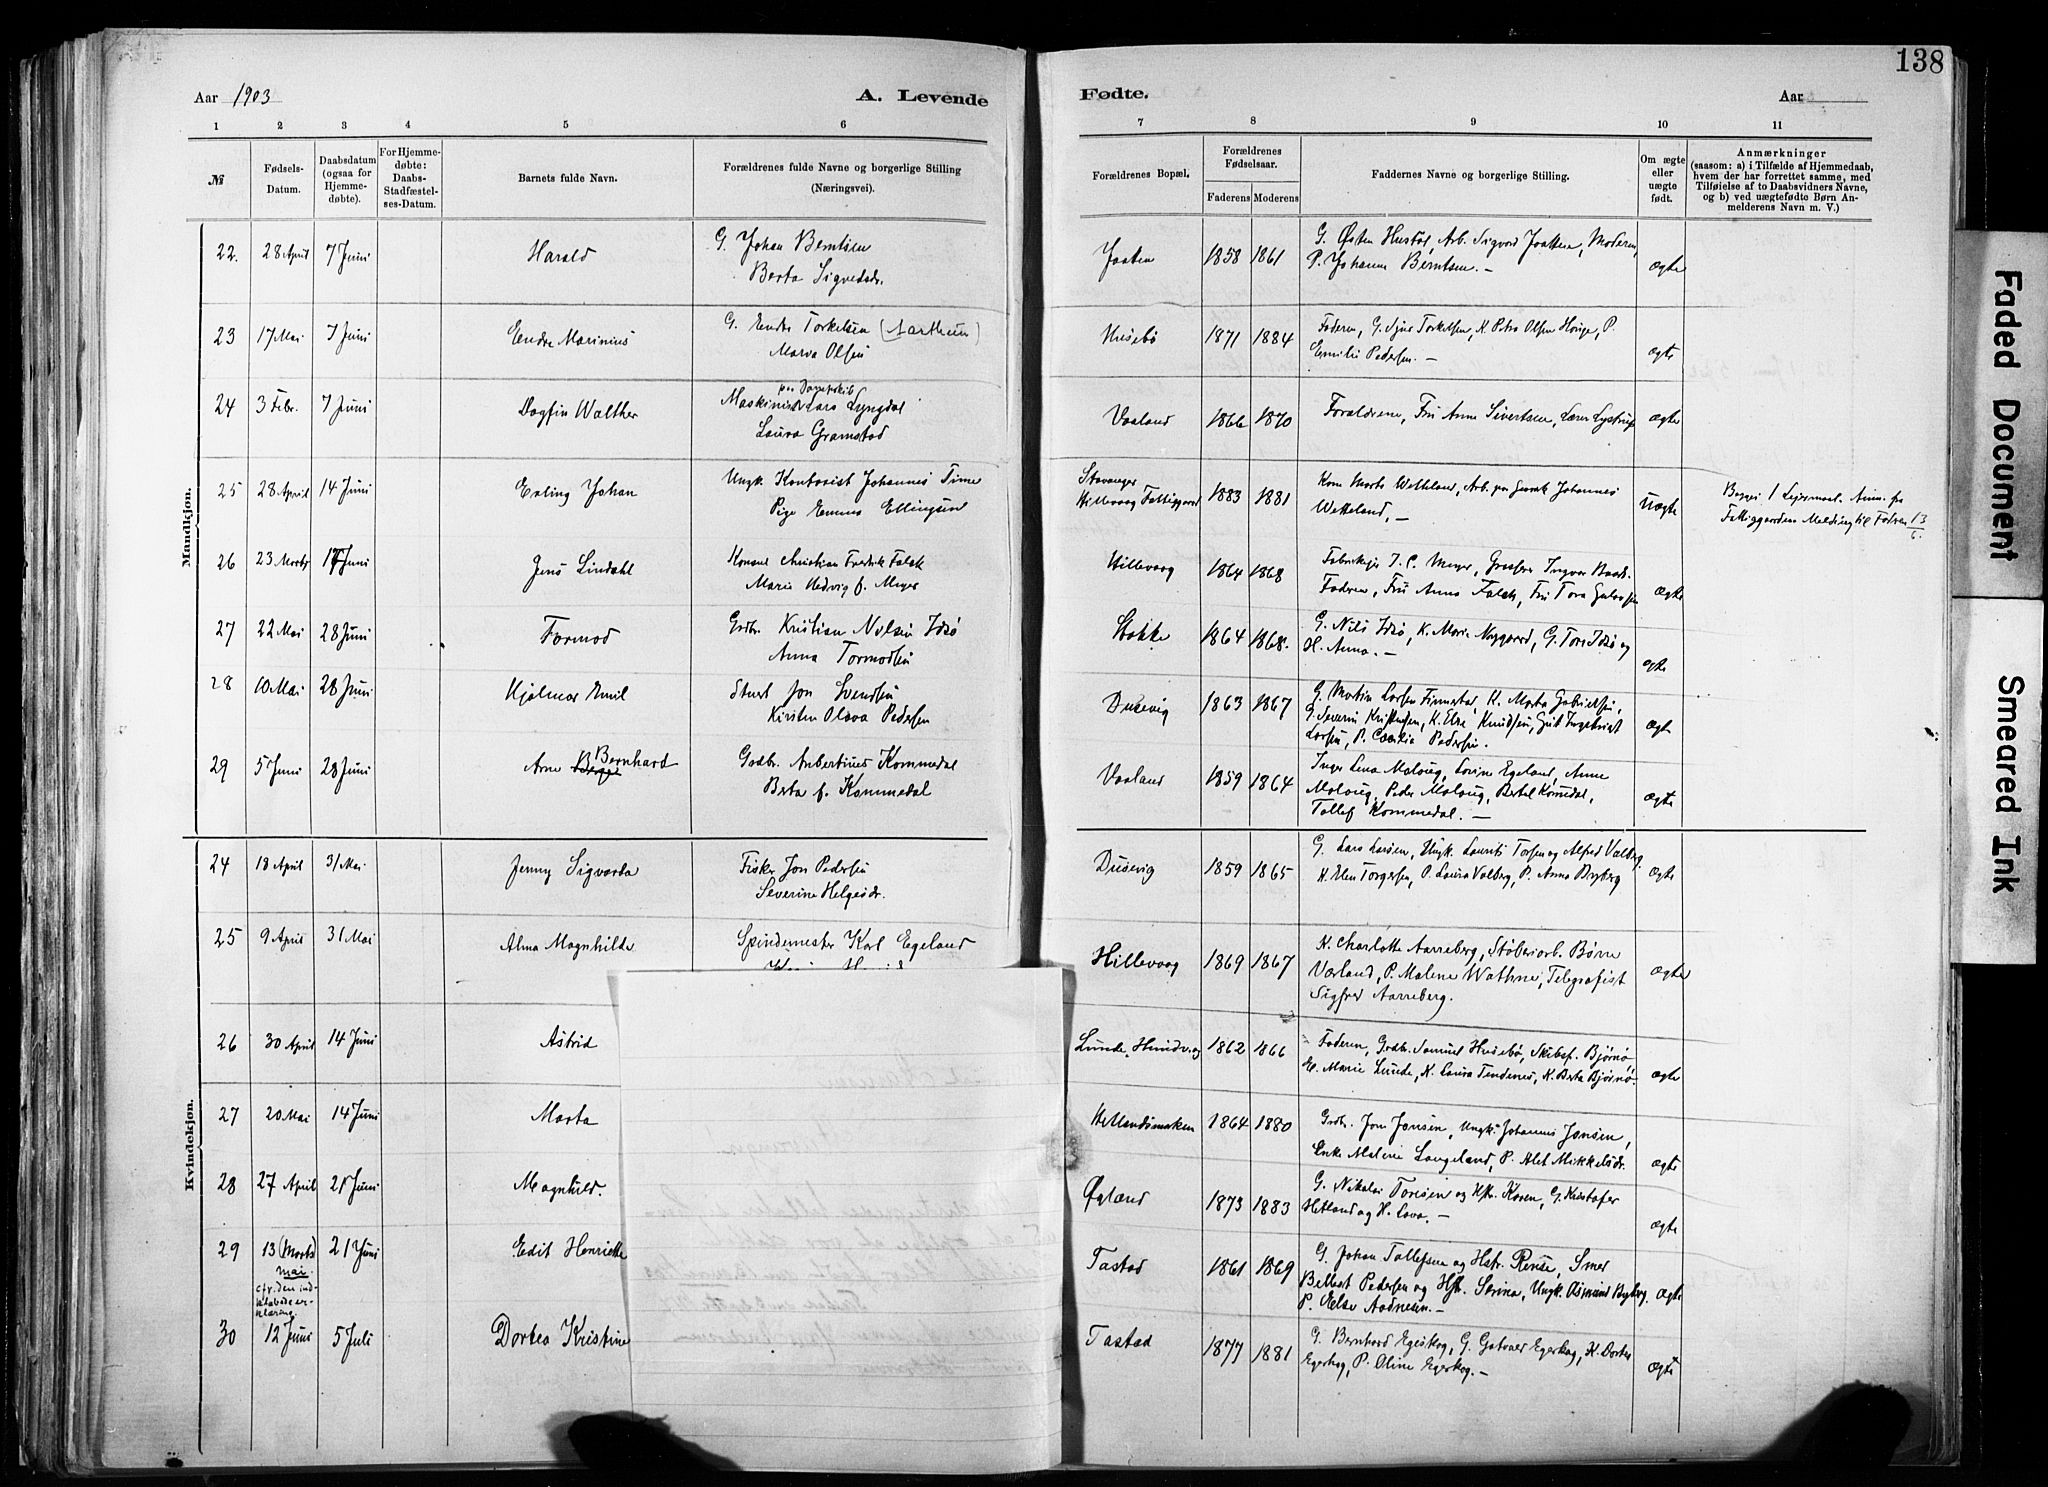 138
Aar 1903
A. Levende
Fødte.
Aar
1 2 3 4 5 6 7 8 9 10 11
№
Fødsels-
Datum.
Daabsdatum
(ogsaa for
Hjemme-
døbte).
For Hjemme-
døbte:
Daabs-
Stadfæstel-
ses-Datum.
Barnets fulde Navn.
Forældrenes fulde Navne og borgerlige Stilling
(Næringsvei).
Forældrenes Bopæl.
Forældrenes
Fødselsaar.
Faderens Moderens
Faddernes Navne og borgerlige Stilling.
Om ægte
eller
uægte
født.
Anmærkninger
(saasom: a) i Tilfælde af Hjemmedaab,
hvem der har forrettet samme, med
Tilføielse af to Daabsvidners Navne,
og b) ved uægtefødte Børn An-
melderens Navn m. V.)
Mandkjøn.
22. 28 April 7 Juni Harald
G. Johan Berntsen
Berta Sigvedsdr.
Jaaten 1858 1861
G. Østen Hustøl, Arb. Sigvard Jaatten, Moderen,
P. Johanne Berntsen. –
ægte
23 17 Mai 7 Juni Endre Marinius
G. Endre Torkelsen (Aartheim)
Marva Olsen
Husebö 1871 1884
Faderen, G. Sjur Torkelsen, K. Petra Olsen Hauge, P.
Emilie Pedersen. –
ægte
24 3 Febr. 7 Juni Dagfin Walther
paa Dampskib
Maskinist Lars Lyngdal
Laura Gramstad
Vaaland 1866 1870
Forældrene, Fru Anne Sivertsen, Lærer Lystrup
ægte
25 28 April 14 Juni Erling Johan
Ungk. Kontorist Johannes Time
Pige Emma Ellingsen
Stavanger
Hillevaag Fattiggaard 1883 1881
Kone Marta Wetteland, Arb. paa Johannes
Wetteland, –
Uægte
Begges 1 Leiermaal. Anm. fra
Fattiggaarden Melding til Fadren 13/6.
26 23 Marts 17 Juni Jens Lindahl
Konsul Christian Fredrik Falck
Marie Hedvig f. Meyer
Hillevaag 1864 1868
Fabrikeier J. C. Meyer, Grosserer Ingvar
Faderen, Fru Anna Falck, Fru Tora
ægte
27 22 Mai 28 Juni Tormod
Grdbr. Kristian Nilsen Idsö
Anna Tormodsen
Stokke 1864 1868.
G. Nils Idsö, K. Marie Nygaard, G. Tore Idsö og
H. Anna. –
ægte
28 10 Mai 28 Juni Hjalmar Emil
Stuert Jon Svendsen
Kirsten Olava Pedersen
Dusevig 1863 1867
G. Martin Larsen Finnestad, K. Marta Gabrielsen,
G. Severin Kristensen, K. Else Knudsen, Gut Ingebrigt
Larsen, P. Cecilia Pedersen.
ægte
29 5 Juni 28 Juni Arne Berge Bernhard
Gaardbr. Anbertinus Kommedal
Berta f. Kommedal
Vaaland 1859 1864
Inger Lena Malaug, Lorine Egeland, Anne
Malaug, Peder Malaug, Bertel Komedal,
Tollef Kommedal. –
ægte
Kvindekjøn.
24 18 April 31 Mai Jenny Sigvarta
Fisker Jon Pedersen
Severine Helgesdr.
Dusevig 1859 1865
G. Lars Larsen, Ungk. Laurits Torsen og Alfred Valberg.
K. Elen Torgersen, P. Laura Valberg, P. Anna Bryberg
ægte
25 9 April 31 Mai Alma Magnhilde
Spindemester Karl Egeland
Hillevaag 1869 1867
K. Charlotte Aarreberg, Støberiarb. Børre
Varland, P. Malene Wathne, Telegrafist
Sigfred Aarreberg.
ægte
26 30 April 14 Juni Astrid
Lunde, Hundvaag 1862 1866
Faderen, Grdbr. Samuel Husebö, Skibsf. Bjørnø,
E. Marie Lunde, K. Laura Tendenes, K. Berta Bjørnø.
ægte
27 20 Mai 14 Juni Marta
Hetlandsmarken 1864 1880
Grdbr. Jon Jonsen, Ungk. Johannes Jonsen,
Enke Malene Langeland, P. Alet Mikkelsdr.
ægte
28 27 April 21 Juni Magnhild.
Øgland 1873 1883
G. Nikolai Toresen og Hst. Karen, G. Kristofer
Hetland og H. Lava. –
ægte
29 13 (Marts) 21 Juni Edit Henriette
mai.
cfr. den ind-
klæbede er-
klæring.
Tastad 1861 1869
G. Johan Tollefsen og Hstr. Rense, Smed
Bettest Pedersen og Hst. Serina, Ungk. Asmund Byberg,
P. Else Aadnesen. –
ægte
30 12 Juni 5 Juli Dortea Kristine
Tastad 1877 1881
G. Bernhard Egeskog, G. Gotvær Egeskog, K. Dortea
Egeskog, P. Oline Egeskog. –
ægte
Faded Document
Smeared Ink